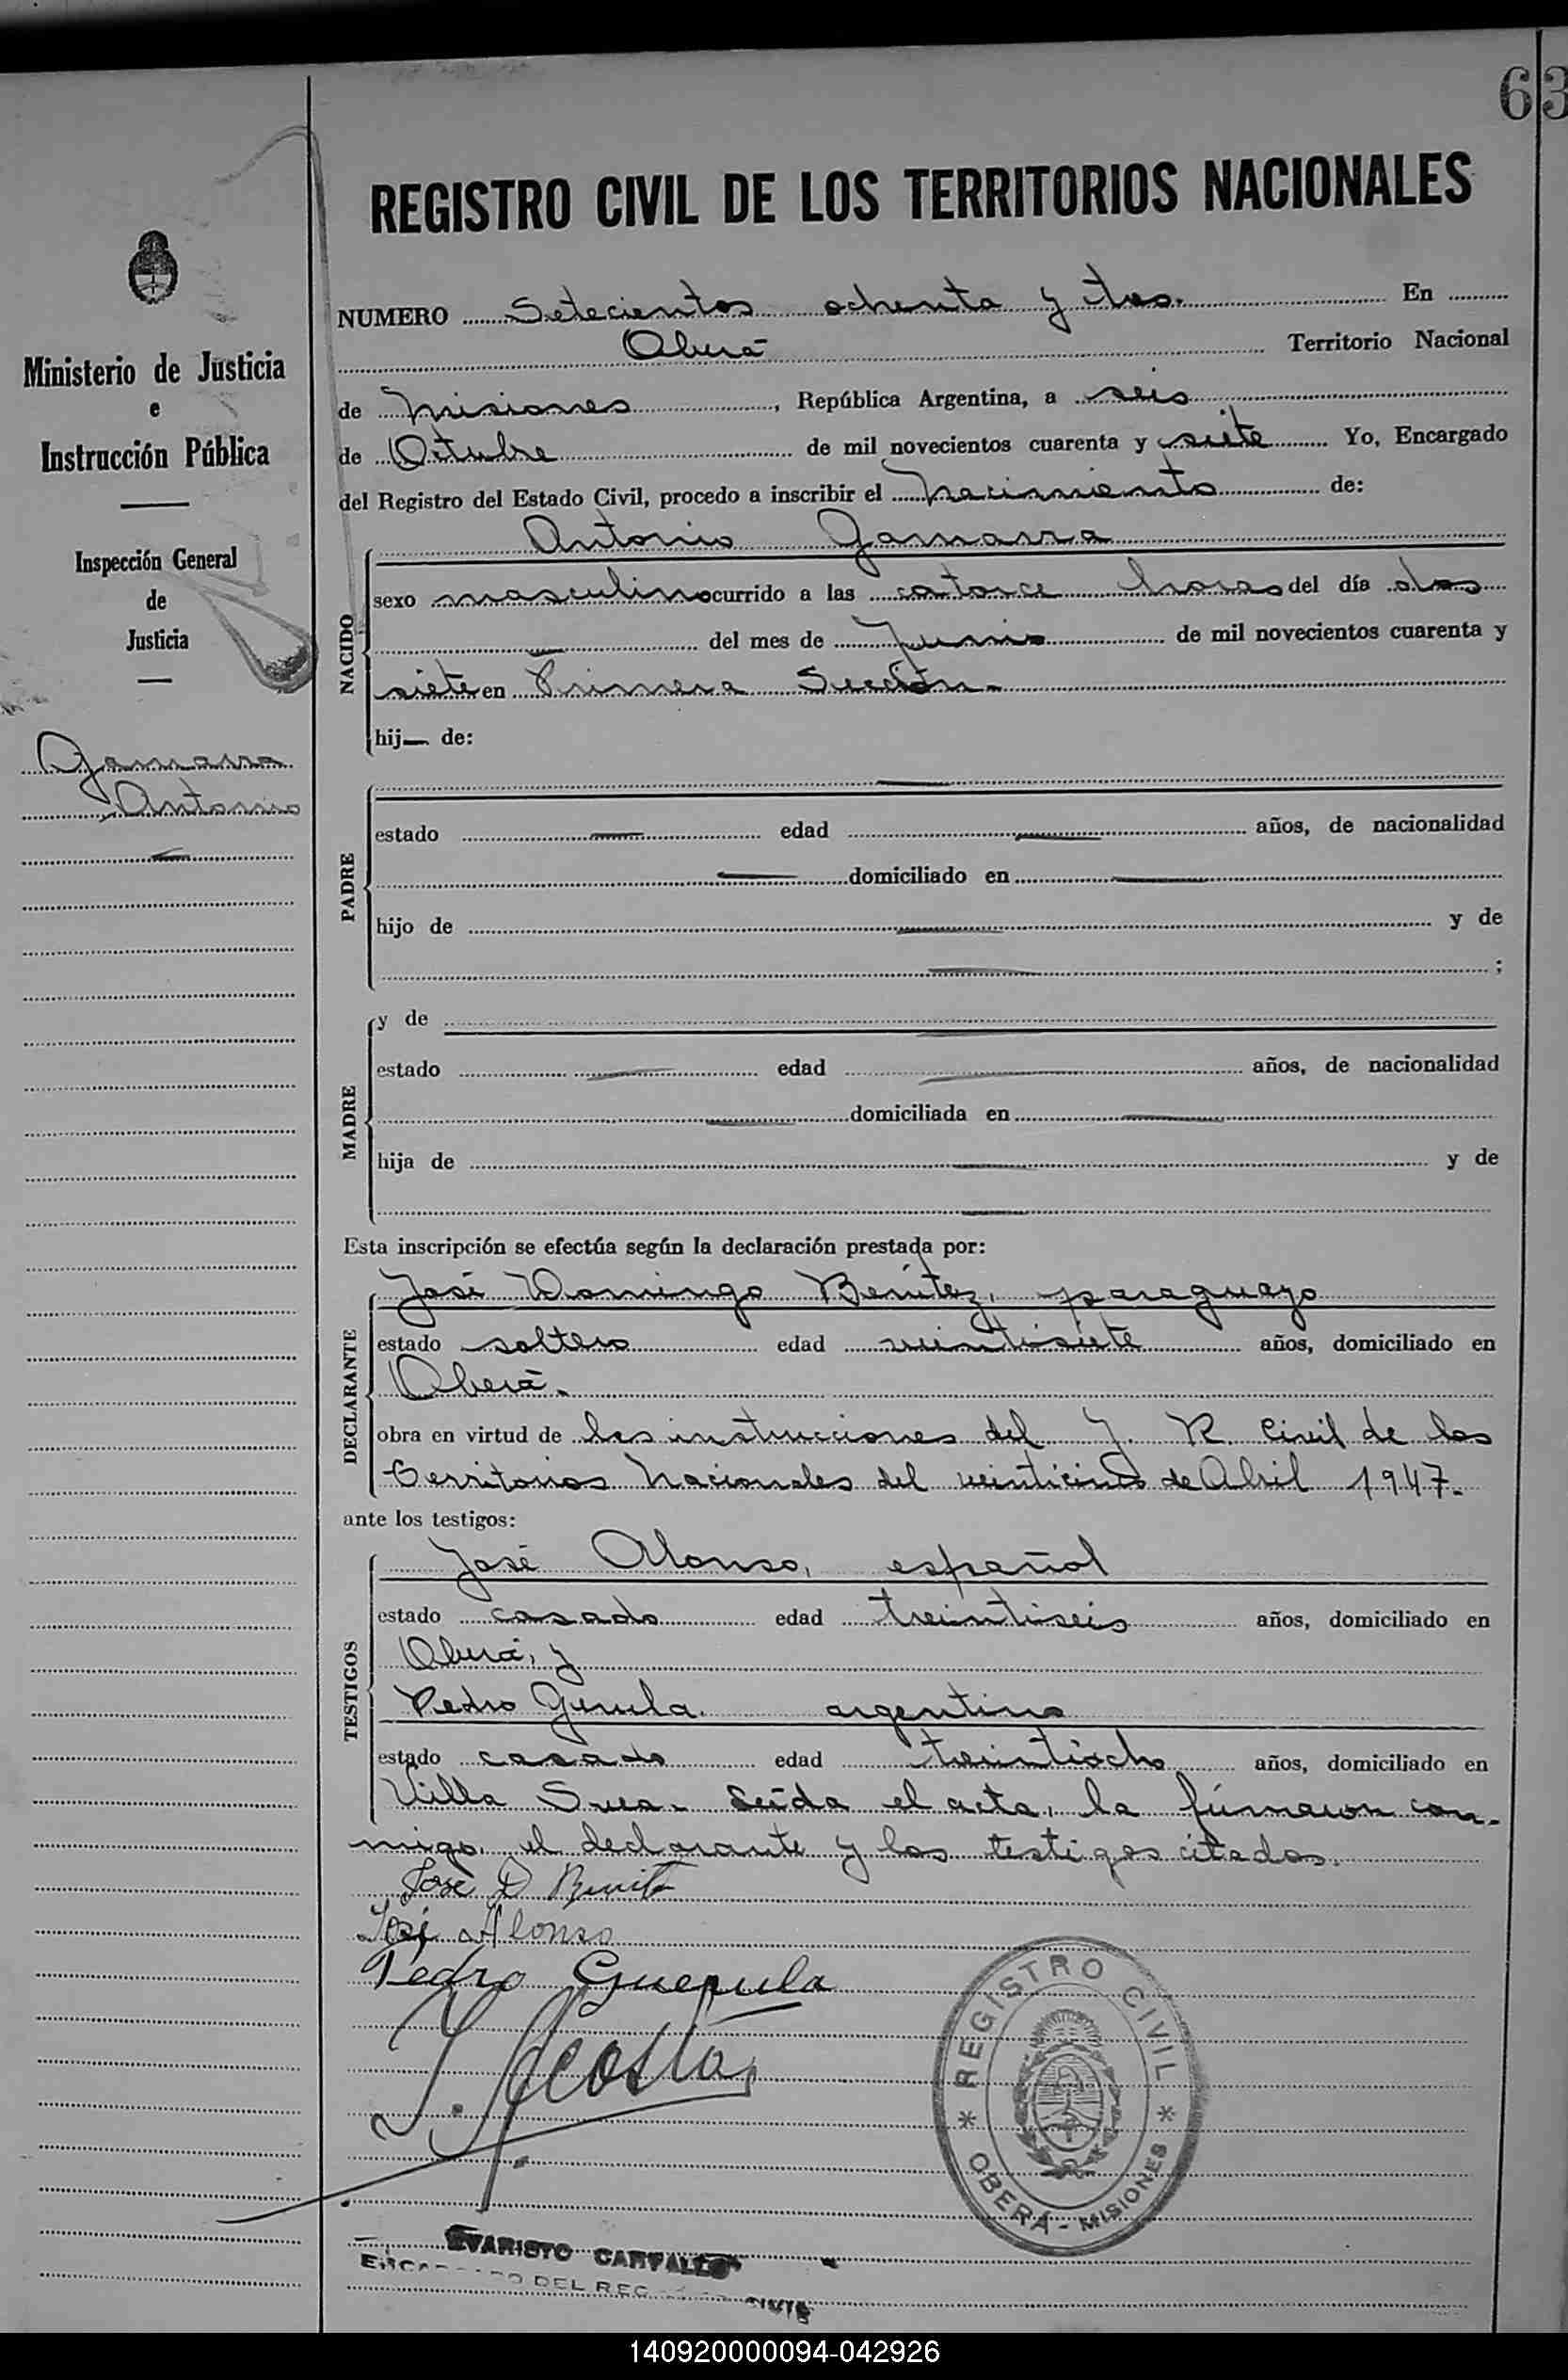 63
REGISTRO CIVIL DE LOS TERRITORIOS NACIONALES
Ministerio de Justicia
e
Instrucción Pública
Inspección General
de
Justicia
Gamarra
Antonio
NUMERO Setecientos ochenta y tres. En
Oberá Territorio Nacional
de Misiones, República Argentina, a seis
de Octubre de mil novecientos cuarenta y siete Yo, Encargado
del Registro del Estado Civil, procedo a inscribir el nacimiento de:
NACIDO
Antonio Gamarra
sexo masculino ocurrido a las catorce horas del día dos
del mes de Junio de mil novecientos cuarenta y
siete en Primera Sección.
hij— de:
PADRE
estado — edad — años, de nacionalidad
— domiciliado en —
hijo de — y de
— ;
MADRE
y de —
estado — edad — años, de nacionalidad
— domiciliada en —
hija de — y de
—
Esta inscripción se efectúa según la declaración prestada por:
DECLARANTE
José Domingo Benítez, paraguayo
estado soltero edad veintisiete años, domiciliado en
Oberá.
obra en virtud de las instrucciones del J. R. Civil de los
Territorios Nacionales del veinticinco de Abril 1947.
ante los testigos:
TESTIGOS
José Alonso, español
estado casado edad treintiseis años, domiciliado en
Oberá, y
Pedro argentino
estado casado edad treintiocho años, domiciliado en
Villa Svea. Leída el acta, la firmaron con-
migo, el declarante y los testigos citados.
José D Benitez
José Alonso
Pedro Guerula
J. Acosta
REGISTRO CIVIL
* OBERÁ - MISIONES *
EVARISTO CARVALLO
ENCARGADO DEL REG CIVIL
140920000094-042926